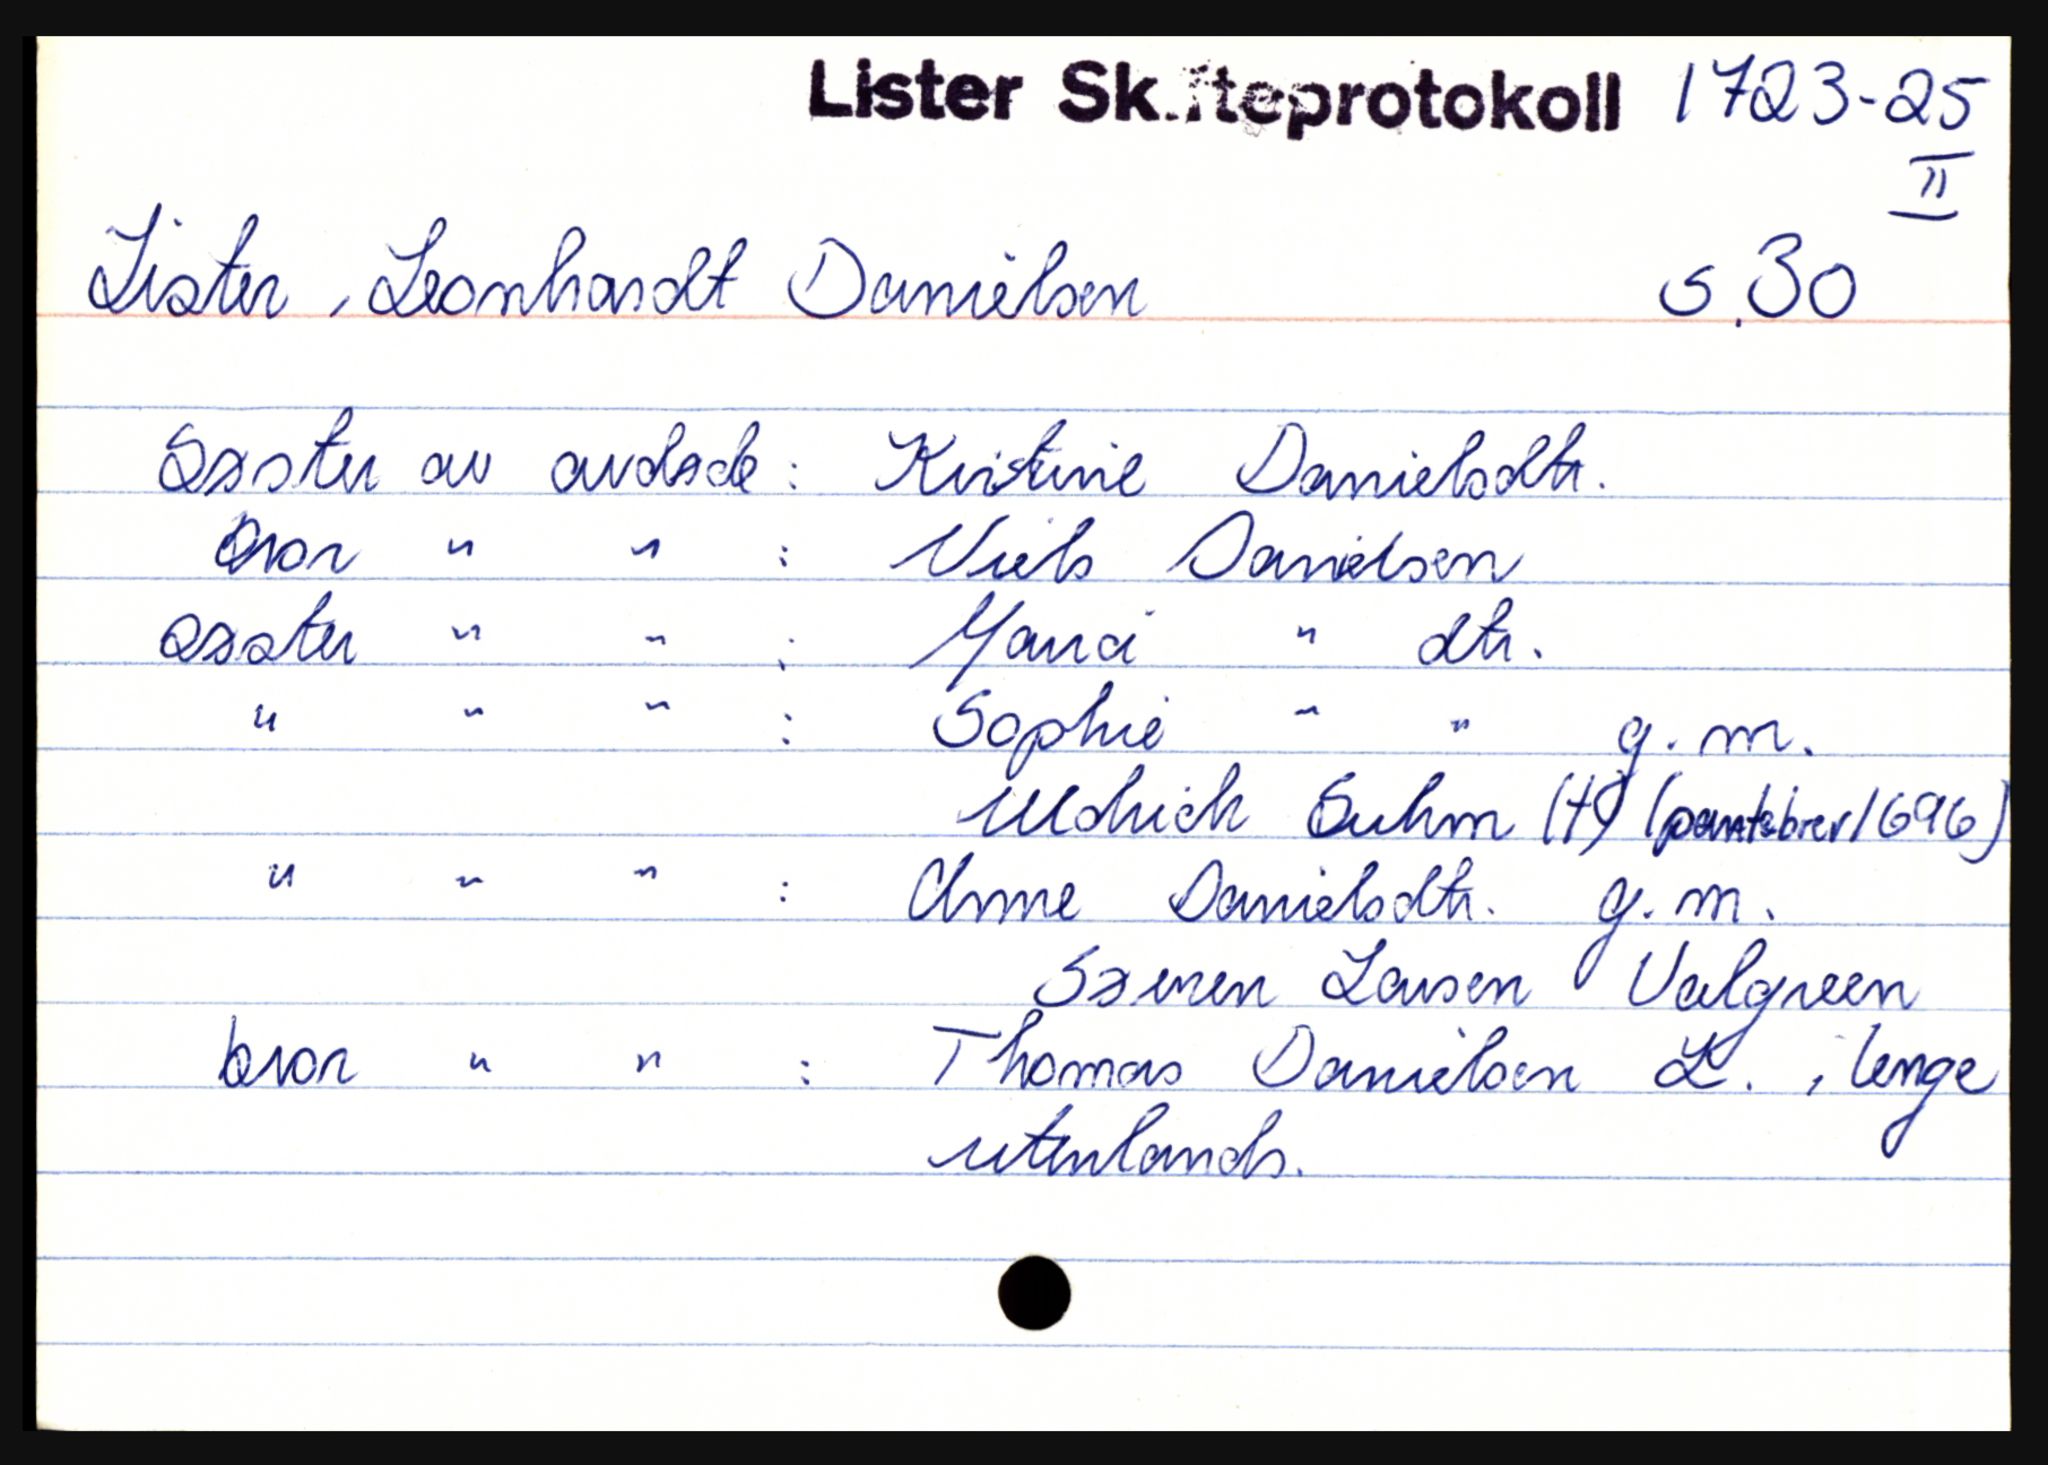 Lister Skifteprotokoll 1723-25
II
Lister, Leonhardt Danielsen s. 30
Søster av avdøde: Kristine Danielsdtr.
bror " " : Niels Danielsen
søster " " : Marci " dtr.
" " " : Sophie " " g. m.
Uldrich Suhm (†) (pantebrev 1696)
" " " : Anne Danielsdtr. g. m.
Søeren Lausen Valgreen
bror " " : Thomas Danielsen L. , lenge
utenlands.